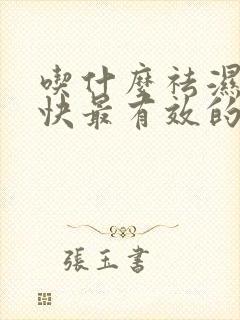 喫什麼祛濕
快最有效的
張玉書